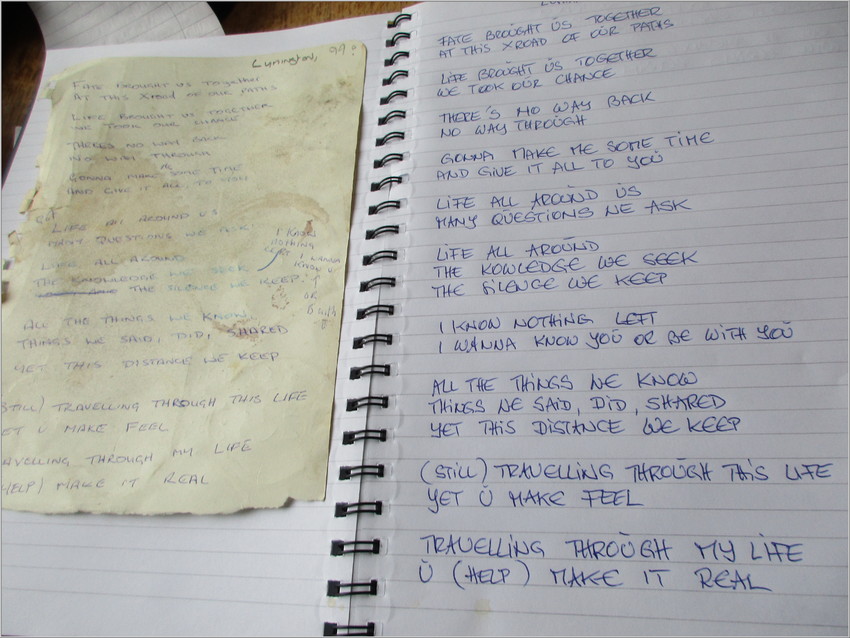 Lymington, 99?
FATE BROUGHT US TOGETHER
AT THIS XROAD OF OUR PATHS
LIFE BROUGHT US TOGETHER
WE TOOK OUR CHANCE
THERES NO WAY BACK
NO WAY THROUGH
GONNA MAKE SOME TIME
AND GIVE IT ALL TO YOU
LIFE ALL AROUND US
MANY QUESTIONS WE ASK
LIFE ALL AROUND
THE KNOWLEDGE WE SEEK
THE SILENCE WE KEEP
I KNOW
NOTHING
LEFT I WANNA
KNOW U
OR
B with
U
ALL THE THINGS WE KNOW
THINGS WE SAID, DID, SHARED
YET THIS DISTANCE WE KEEP
STILL) TRAVELLING THROUGH THIS LIFE
ET U MAKE FEEL
AVELLING THROUGH MY LIFE
HELP) MAKE IT REAL
FATE BROUGHT ŪS TOGETHER
AT THIS XROAD OF OŪR PATHS
LIFE BROUGHT ŪS TOGETHER
WE TOOK OŪR CHANCE
THERE'S NO WAY BACK
NO WAY THROŪGH
GONNA MAKE ME SOME TIME
AND GIVE IT ALL TO YOŪ
LIFE ALL AROŪND ŪS
MANY QŪESTIONS WE ASK
LIFE ALL AROŪND
THE KOWLEDGE WE SEEK
THE SILENCE WE KEEP
I KNOW NOTHING LEFT
I WANNA KNOW YOŪ OR BE WITH YOŪ
ALL THE THINGS WE KNOW
THINGS WE SAID, DID, SHARED
YET THIS DISTANCE WE KEEP
(STILL) TRAVELLING THROŪGH THIS LIFE
YET Ū MAKE FEEL
TRAVELLING THROŪGH MY LIFE
Ū (HELP) MAKE IT REAL